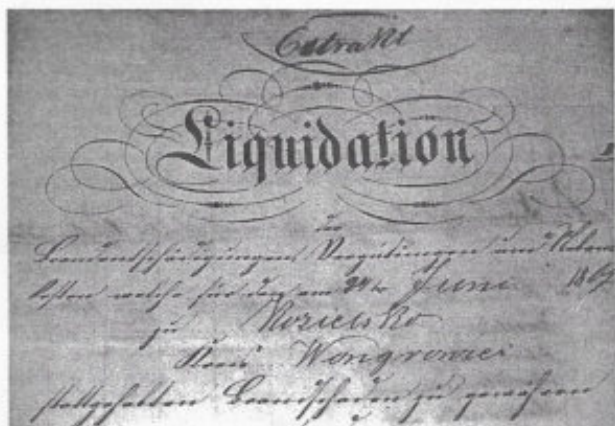 Extrakt
Liquidation
der
Brandentschädigungen Vergütungen und Neben
kosten welche für den am Juni 18
zu Kozielsko
Kreis Wongrowiec
stattgehabten Brandschaden zu gewähren